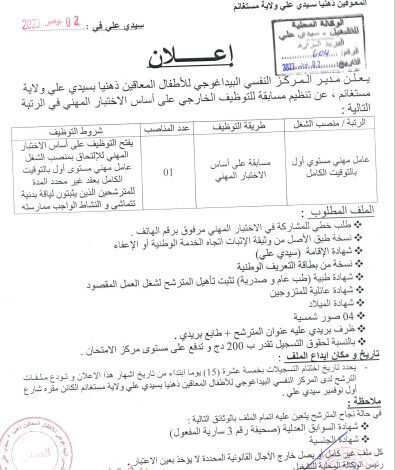 المعوقين ذهنيا سيدي علي ولاية مستغانم
سيدي علي في : 02 نوفمبر 2023
الوكالة المحلية
للتشغيل - سيدي علي
البريد الوارد
إعـــلان
يـعـلن مديـر الـمركـز النفسي البيداغوجي للأطفال المعاقين ذهنيا بسيدي علي ولاية
مستغانم ، عن تنظيم مسابقة للتوظيف الخارجي على أساس الاختبار المهني في الرتبة
التالية :
الرتبة / منصب الشغل
طريقة التوظيف
عدد المناصب
شروط التوظيف
عامل مهني مستوى أول
بالتوقيت الكامل
مسابقة على أساس
الاختبار المهني
01
يفتح التوظيف على أساس الاختبار
المهني للإلتحاق بمنصب الشغل
عامل مهني مستوى أول بالتوقيت
الكامل بعقد غير محدد المدة
للمترشحين الذين يثبتون لياقة بدنية
تتماشى و النشاط الواجب ممارسته
الملف المطلوب :
❖ طلب خطي للمشاركة في الاختبار المهني مرفوق برقم الهاتف .
❖ نسخة طبق الأصل من وثيقة الإثبات اتجاه الخدمة الوطنية أو الإعفاء
❖ شهادة الإقامة (سيدي علي)
❖ نسخة من بطاقة التعريف الوطنية
❖ شهادة طبية (طب عام و صدرية) تثبت تأهيل المترشح لشغل العمل المقصود
❖ شهادة عائلية للمتزوجين
❖ شهادة الميلاد
❖ 04 صور شمسية
❖ ظرف بريدي عليه عنوان المترشح + طابع بريدي .
❖ بالنسبة لحقوق التسجيل تقدر ب 200 دج و تدفع على مستوى مركز الامتحان .
تاريخ و مكان إيداع الملف :
- يحدد تاريخ اختتام التسجيلات بخمسة عشرة (15) يوما ابتداء من تاريخ إشهار هذا الإعلان و تودع ملفات
الترشح لدى المركز النفسي البيداغوجي للأطفال المعاقين ذهنيا بسيدي علي ولاية مستغانم الكائن مقره شارع
أول نوفمبر سيدي علي .
ملاحظة :
في حالة نجاح المترشح يتعين عليه اتمام الملف بالوثائق التالية :
❖ شهادة السوابق العدلية (صحيفة رقم 3 سارية المفعول)
❖ شهادة الجنسية
كل ملف غير كامل أو يصل خارج الآجال القانونية المحددة لا يؤخذ بعين الاعتبار